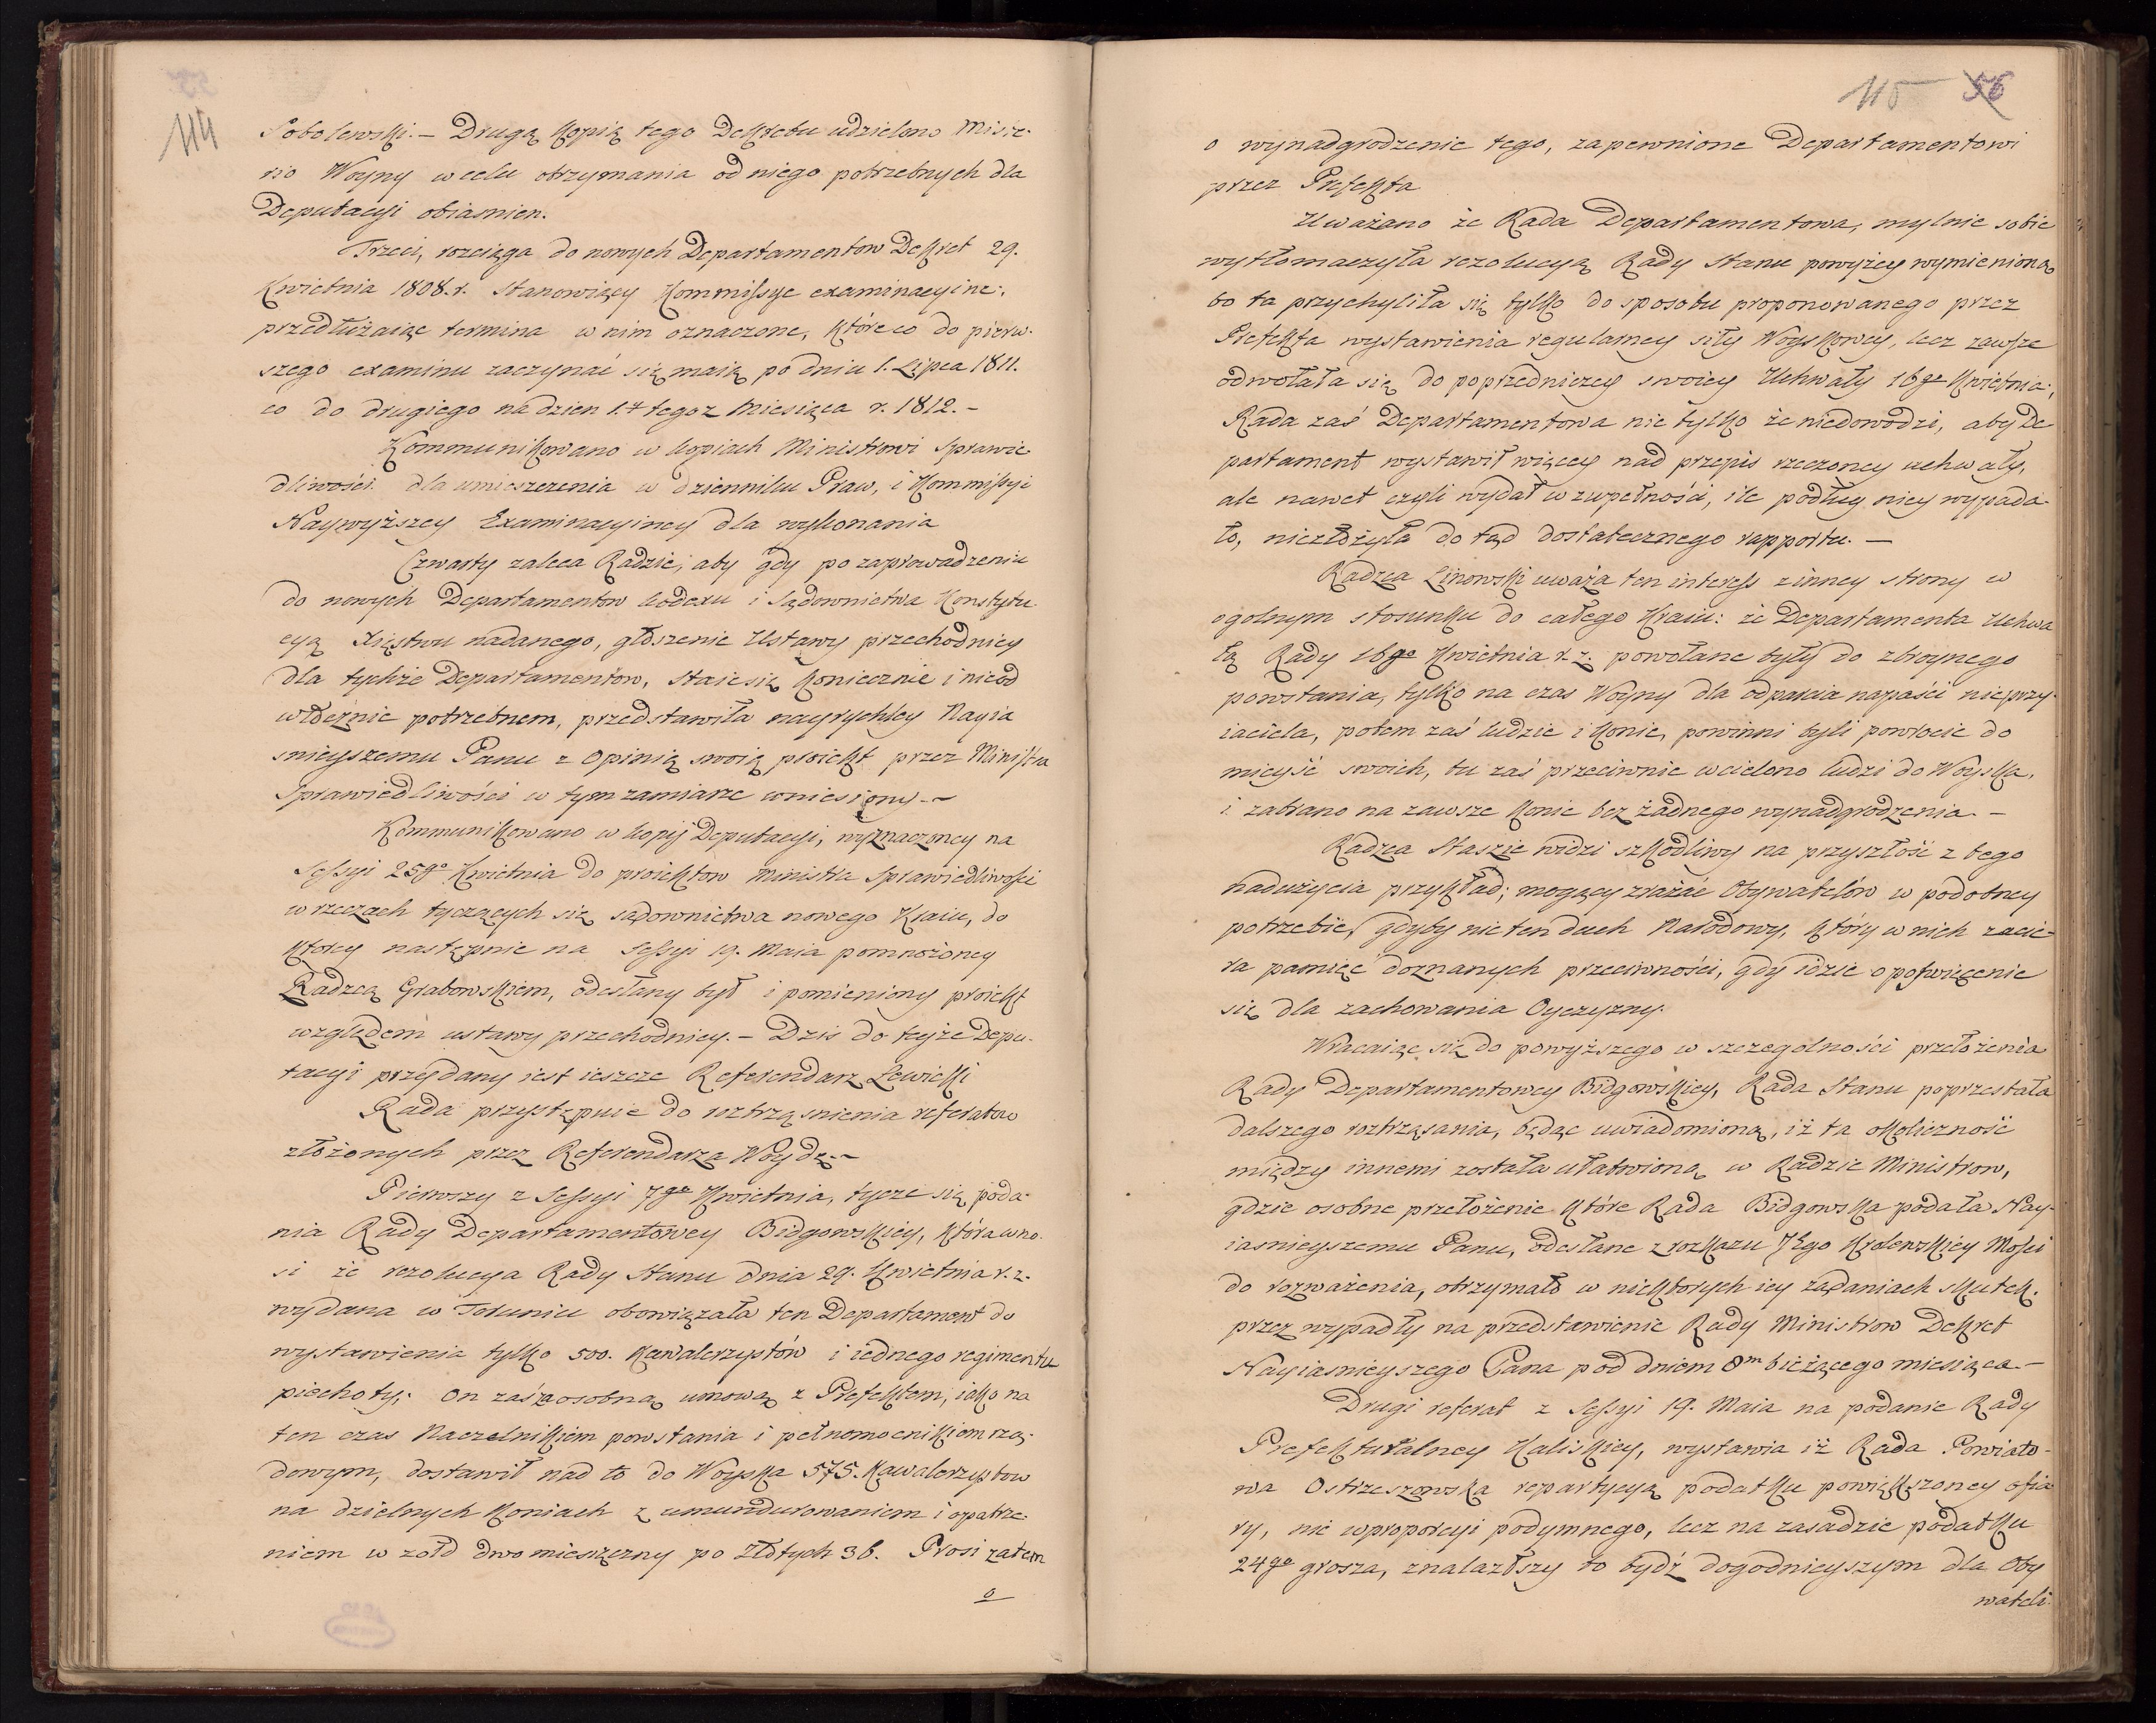 114
Sobolewski. – Drugą kopią tego Dekretu udzielono Misze-
rio Woyny w celu otrzymania od niego potrzebnych dla
Deputacyi obiasnien.
Trzeci, rozciąga do nowych Departamentow Dekret 29.
Kwietnia 1808. r. Stanowiący Kommissye examinacyine.
przedłużaiąc termina w nim oznaczone, które co do pierw-
szego examinu zaczynać się maią po dniu 1. Lipca 1811.
co do drugiego na dzien 1. tegoz Miesiąca r. 1812. –
Kommunikowano w kopiach Ministrowi Sprawie
dliwości dla umieszczenia w dzienniku Praw, i Kommissyi
Naywyższey Examinacyiney dla wykonania
Czwarty zaleca Radzie, aby gdy po zaprowadzeniu
do nowych Departamentow kodexu i Sądownictwa Konstytu-
cyą Xięstwu nadanego, głoszenie Ustawy przechodniey
dla tychże Departamentów, staie się koniecznie i nieod
włocznie potrzebnem, przedstawiła nayrychley Nayia
snieyszemu Panu z Opinią swoią proiekt przez Ministra
Sprawiedliwości w tym zamiarze wniesiony. –
Kommunikowano w kopij Deputacyi, wyznaczoney na
Sessyi 25go Kwietnia do proiektow Ministra Sprawiedliwości
w rzeczach tyczących się sądownictwa nowego Kraiu, do
ktorey następnie na Sessyi 19. Maia pomnożoney
Radzcą Grabowskiem, odesłany był i pomieniony proiekt
względem ustawy przechodniey. – Dzis do teyże Depu-
tacyi przydany iest ieszcze Referendarz Lewicki
Rada przystępuie do roztrząsnienia referatow
złożonych przez Referendarza Woydę. –
Pierwszy z Sessyi 7go Kwietnia, tycze się poda-
nia Rady Departamentowey Bidgowskiey, która wno-
si że rezolucya Rady Stanu dnia 29. Kwietnia r. z.
wydana w Toruniu obowiązała ten Departament do
wystawienia tylko 500. Kawalerzystów i iednego regimentu
piechoty; On zaś za osobną umową z Prefektem, iako na
ten czas Naczelnikiem powstania i pełnomocnikiem rzą-
dowym, dostawił nad to do Woyska 575. Kawalerzystow
na dzielnych koniach z umundurowaniem i opatrze-
niem w żołd dwomiesięczny po Złotych 36. Prosi zatem
o
115 56
o wynadgrodzenie tego, zapewnione Departamentowi
przez Prefekta
Uważano że Rada Departamentowa, mylnie sobie
wytłomaczyła rezolucyą Rady Stanu powyżey wymienioną
bo ta przychyliła się tylko do sposobu proponowanego przez
Prefekta wystawienia regularney siły Woyskowey, lecz zawsze
odwołała się do poprzedniczey swoiey Uchwały 16go Kwietnia;
Rada zaś Departamentowa nie tylko że niedowodzi, aby De
partament wystawił więcey nad przepis rzeczoney uchwały,
ale nawet czyli wydał w zupełności, ile podług niey wypada-
ło, niezłożyła do tąd dostatecznego rapportu. –
Radzca Linowski uważa ten interess z inney strony w
ogolnym stosunku do całego Kraiu: że Departamenta Uchwa
łą Rady 16go Kwietnia r. z. powołane były do zbroynego
powstania, tylko na czas Woyny dla odparcia napaści nieprzy-
iaciela, potem zaś ludzie i konie, powinni byli powrocic do
mieysć swoich, tu zaś przeciwnie wcielono ludzi do Woyska,
i zabrano na zawsze konie bez żadnego wynadgrodzenia. –
Radzca Staszic widzi szkodliwy na przyszłość z tego
nadużycia przykład; mogący zrażać Obywatelów w podobney
potrzebie, gdyby nie ten duch Narodowy, który w nich zacie-
ra pamięć doznanych przeciwności, gdy idzie o poświęcenie
się dla zachowania Oyczyzny.
Wracaiąc się do powyższego w szczególności przełożenia
Rady Departamentowey Bidgowskiey, Rada Stanu poprzestała
dalszego roztrząsania, będąc uwiadomioną, iż ta okoliczność
między innemi została ułatwioną w Radzie Ministrow,
gdzie osobne przełożenie które Rada Bidgowska podała Nay-
iasnieyszemu Panu, odesłane z rozkazu Jego Krolewskiey Mości
do rozważenia, otrzymało w niektorych iey żądaniach skutek.
przez wypadły na przedstawienie Rady Ministrow Dekret
Nayiasnieyszego Pana pod dniem 8m bieżącego miesiąca. –
Drugi referat z Sessyi 19. Maia na podanie Rady
Prefekturalney Kaliskiey, wystawia iż Rada Powiato-
wa Ostrzeszowska repartycyą podatku powiększoney ofia
ry, nie w proporcyi podymnego, lecz na zasadzie podatku
24go grosza, znalazłszy to bydź dogodnieyszym dla Oby
wateli.